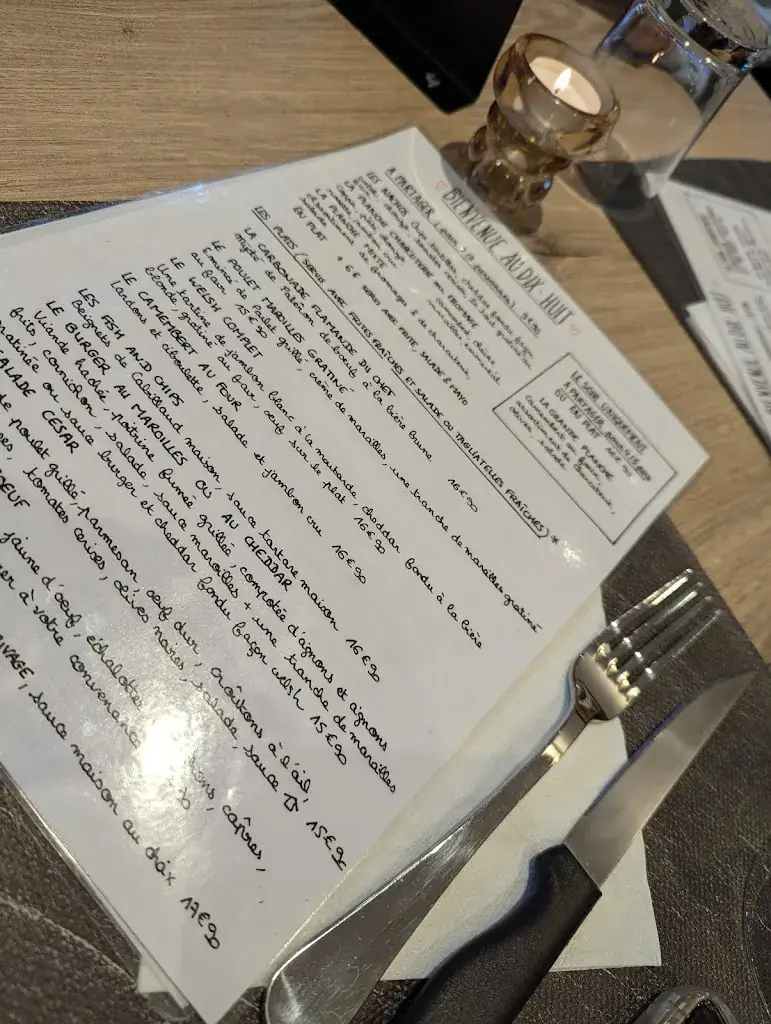 BIENVENUE AU DIX-HUIT
A PARTAGER
LES NACHOS
LA PLANCHE CHARCUTERIE OU FROMAGE
LA PLANCHE MIXTE
assortiment de fromage & de charcuterie,
salade
EN PLAT + 6€ SERVIE AVEC FRITE, SALADE & MAYO
LE SOIR UNIQUEMENT
A PARTAGER
OU EN PLAT
LA GRANDE PLANCHE
Camembert au four,
assortiment de charcuterie,
olives, salade
LES PLATS (SERVIS AVEC FRITES FRAÎCHES ET SALADE OU TAGLIATELLES FRAÎCHES) *
LA CARBONADE FLAMANDE DU CHEF
de boeuf à la bière brune 16€90
LE POULET MAROILLES GRATINÉ
Émincé de poulet grillé, crème de maroilles, une tranche de maroilles gratiné
au four 15€90
LE WELSH COMPLET
Une tartine de jambon blanc à la moutarde, cheddar fondu à la bière
blonde, gratiné au four, oeuf sur le plat 16€90
LE CAMEMBERT AU FOUR
Lardons et ciboulette, salade et jambon cru 16€90
LES FISH AND CHIPS
Beignets de Cabillaud maison, sauce tartare maison 16€90
LE BURGER AU MAROILLES OU AU CHEDDAR
Viande hachée, poitrine fumée grillée, compotée d'oignons et oignons
frits, cornichon, salade, sauce maroilles + une tranche de maroilles
gratinée ou sauce burger et cheddar fondu façon welsh 15€90
SALADE CESAR
de poulet grillé, parmesan, oeuf dur, croûtons à l'ail,
tomates cerises, olives noires, salade, sauce 15€90
BOEUF
jaune d'oeuf, échalottes, câpres,
à votre convenance
sauce maison au choix 17€90